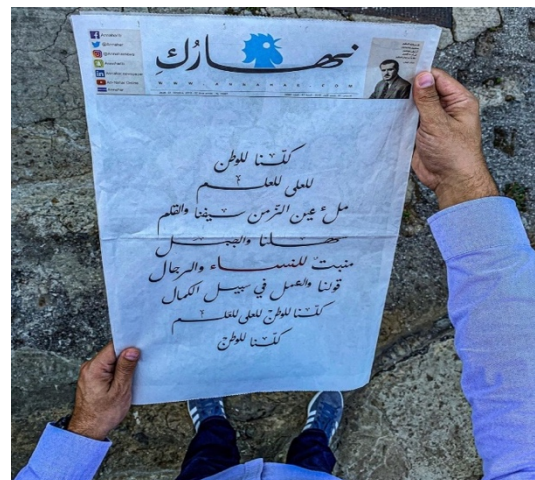 Annaharlb
@Annahar
نهارُكِ
WWW.ANNAHAR.COM
كلّنا للوطن
للعلى للعلم
ملء عين الزّمن سيفنا والقلم
سهلنا والجبل
منبتٌ للنساء والرجال
قولنا والعمل في سبيل الكمال
كلّنا للوطن للعلى للعلم
كلّنا للوطن